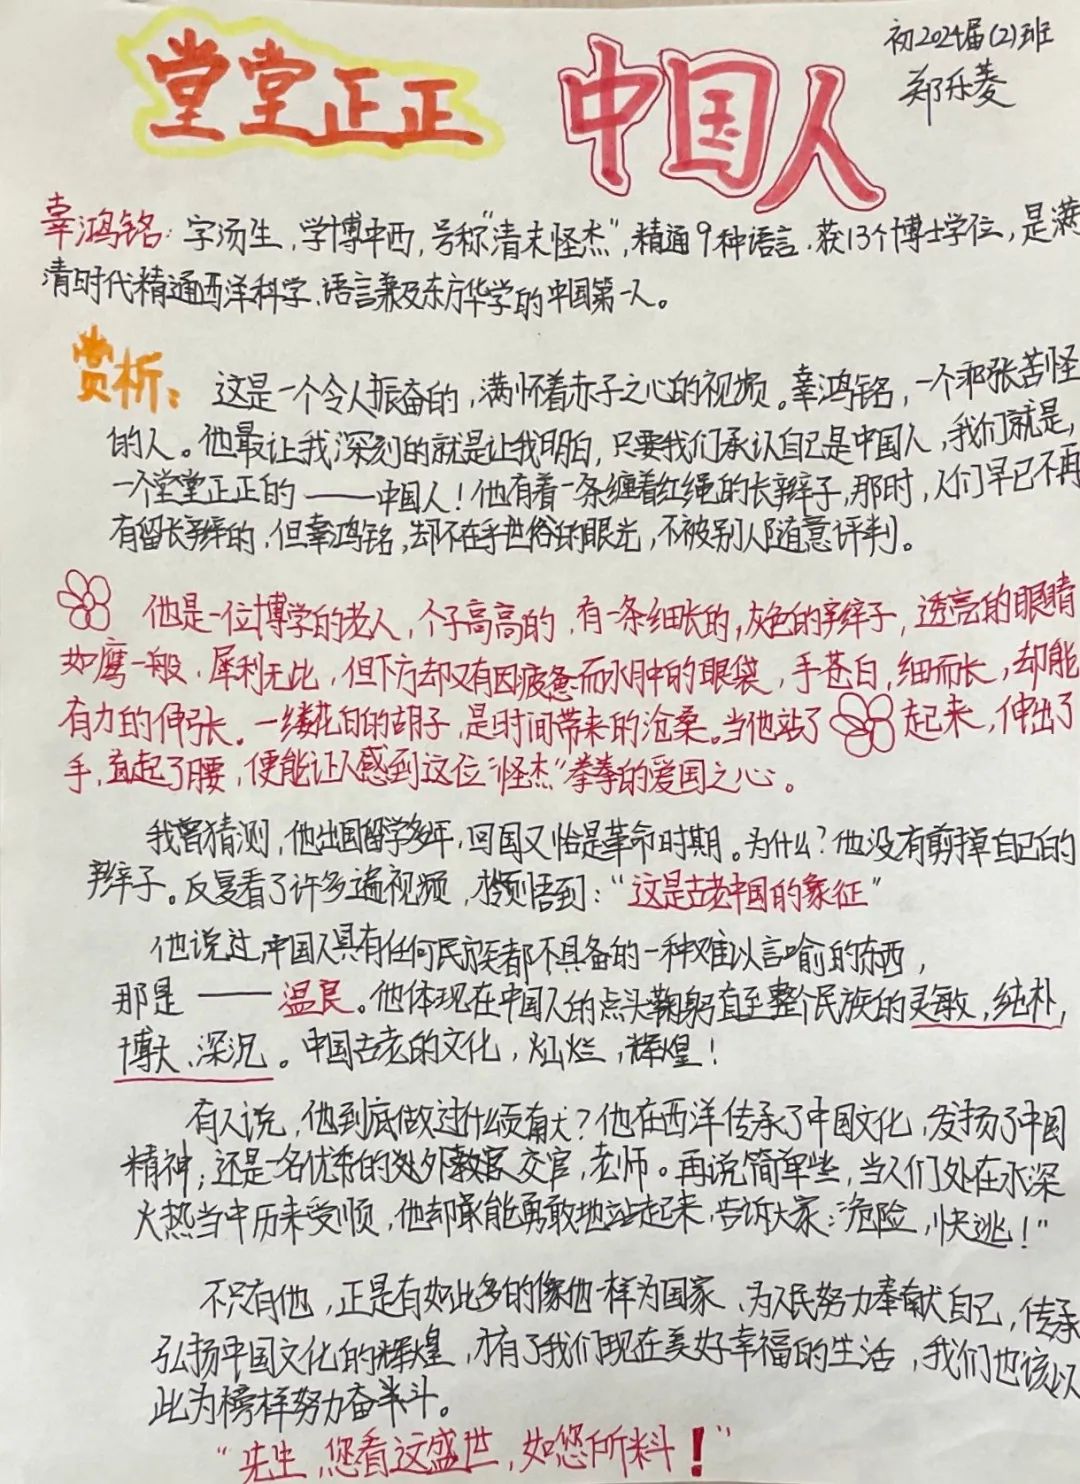 堂堂正正 中国人
初2024届(2)班
郑乐菱
辜鸿铭：字汤生，学博中西，号称"清末怪杰"，精通9种语言，获13个博士学位，是满
清时代精通西洋科学、语言兼及东方华学的中国第一人。
赏析：这是一个令人振奋的，满怀着赤子之心的视频。辜鸿铭，一个乖张苦怪
的人。他最让我深刻的就是让我明白，只要我们承认自己是中国人，我们就是，
一个堂堂正正的——中国人！他有着一条缠着红绳的长辫子，那时，人们早已不再
有留长辫的，但辜鸿铭，却不在乎世俗的眼光，不被别人随意评判。
他是一位博学的老人，个子高高的，有一条细长的，灰色的辫子，透亮的眼睛
如鹰一般，犀利无比，但下方却又有因疲惫而水肿的眼袋，手苍白，细而长，却能
有力的伸张。一缕花白的胡子，是时间带来的沧桑。当他站了起来，伸出了
手，直起了腰，便能让人感到这位"怪杰"拳拳的爱国之心。
我曾猜测，他出国留学多年，回国又恰是革命时期。为什么？他没有剪掉自己的
辫子。反复看了许多遍视频，才领悟到："这是古老中国的象征"
他说过，中国人具有任何民族都不具备的一种难以言喻的东西，
那是——温良。他体现在中国人的点头鞠躬直至整个民族的灵敏，纯朴，
博大、深沉。中国古老的文化，灿烂，辉煌！
有人说，他到底做过什么贡献？他在西洋传承了中国文化，发扬了中国
精神；还是一名优秀的外教官，交官，老师。再说简单些，当人们处在水深
火热当中历来受顺，他却能勇敢地站起来，告诉大家："危险，快逃！"
不只有他，正是有如此多的像他一样为国家、为人民努力奉献自己，传承
弘扬中国文化的辉煌，才有了我们现在美好幸福的生活，我们也该以
此为榜样努力奋斗。
"先生，您看这盛世，如您所料！"